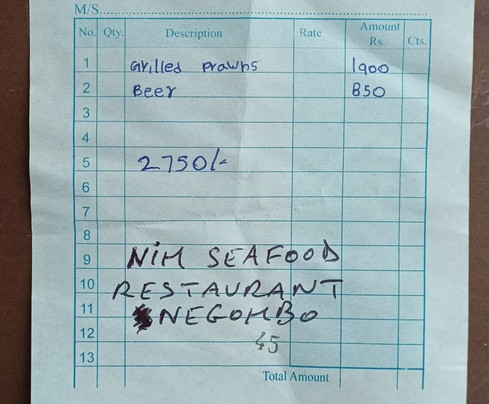 M/S
No. Qty. Description Rate Amount Rs. Cts.
1 Grilled Prawns 1900
2 Beer 850
3
4
5 2750/-
6
7
8
9 NIM SEAFOOD
10 RESTAURANT
11 NEGOMBO
12 45
13
Total Amount